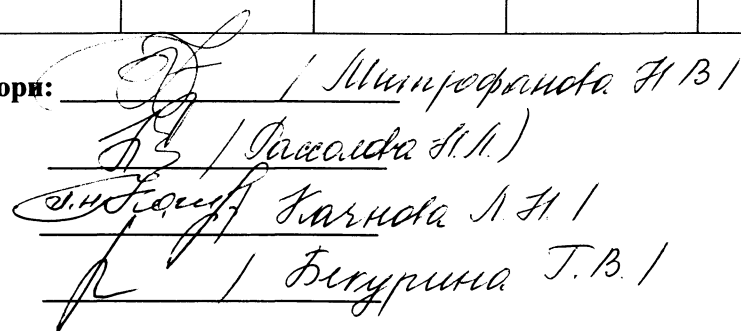 ори: / Митрофанова Н В /
/ Рассолова Н.Л. )
Качнова Л. Н. /
/ Бекурина Т. В. /